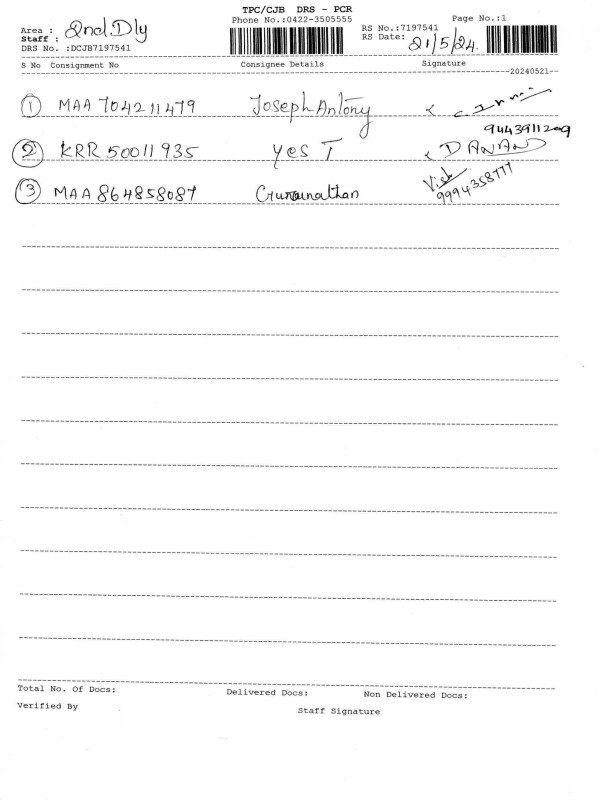 TPC/CJB DRS - PCR
Phone No.:0422-3505555 Page No.:1
Area : 2nd.Dly RS No.:7197541
Staff : RS Date: 21/5/24.
DRS No. :DCJB7197541
S No Consignment No Consignee Details Signature
20240521
1 MAA 704211479 Joseph Antony
9443911209
2 KRR 50011935 Yes T D ANAND
3 MAA 864858087 Gurunathan
9994358777
Total No. Of Docs: Delivered Docs: Non Delivered Docs:
Verified By Staff Signature